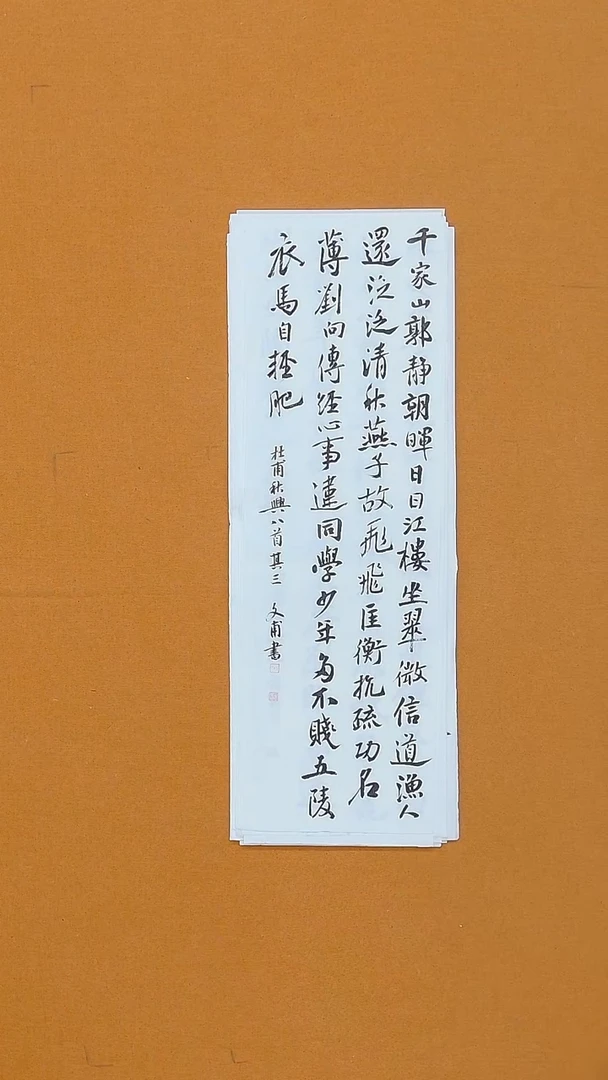 千家山郭靜朝暉日日江樓坐翠微信道漁人
還泛泛清秋燕子故飛飛匡衡抗疏功名
薄劉向傳經心事違同學少年多不賤五陵
衣馬自輕肥
杜甫秋興八首其三 文甫書